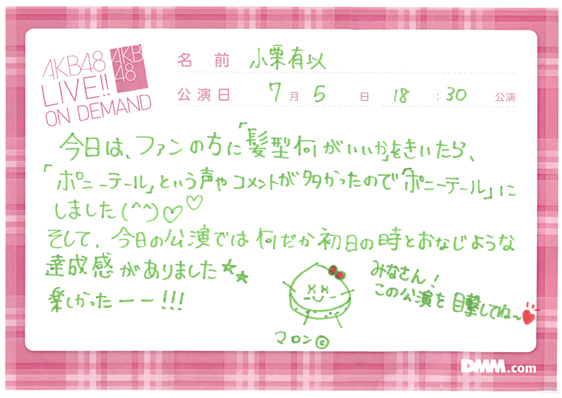 AKB48
LIVE!!
ON DEMAND
AKB
48
名前 小栗有以
公演日 7月5日 18:30公演
今日は、ファンの方に「髪型何がいいか」をきいたら、
「ポニーテール」という声やコメントが多かったので「ポニーテール」に
しました(^^)♡♡
そして、今日の公演では何だか初日の時とおなじような
達成感がありました★★
楽しかったーー!!!
みなさん!
この公演を目撃してね〜
マロン©
DMM.com